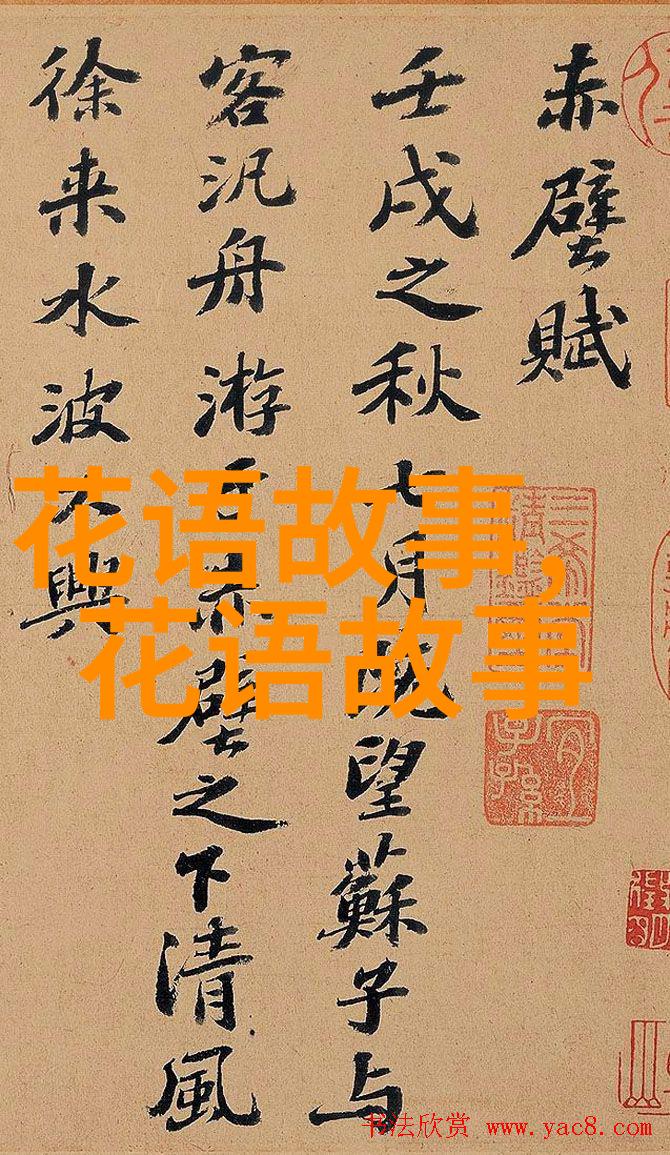 赤壁賦
壬戌之秋七月既望蘇子与
客汎舟游于赤壁之下清風
徐来水波不興
花语故事,
花语故事
宜子孫
书法欣赏 www.yac8.com